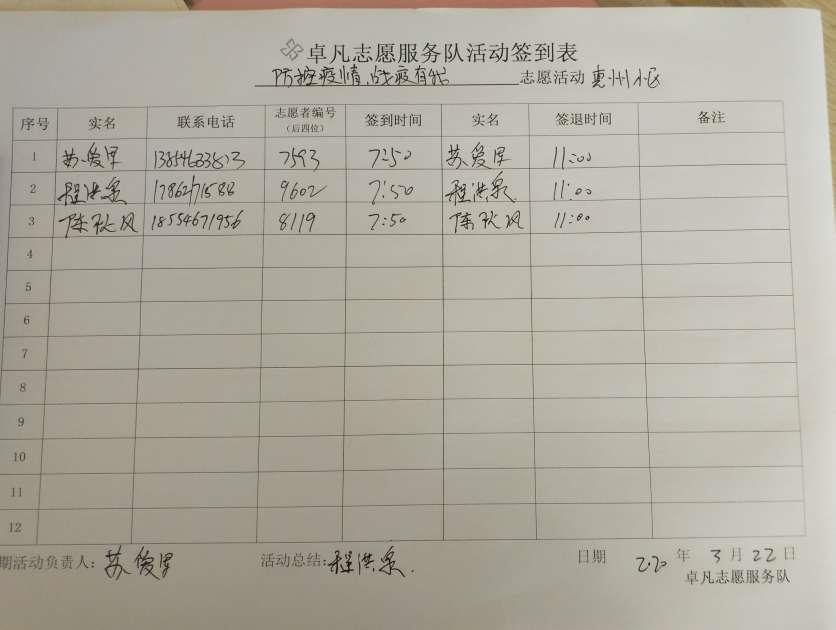 卓凡志愿服务队活动签到表
防控疫情,战疫有我 志愿活动 惠州小区
序号 实名 联系电话 志愿者编号(后四位) 签到时间 实名 签退时间 备注
1 苏爱军 7593 7:50 苏爱军 11:00
2 程洪泉 17862171588 9602 7:50 程洪泉 11:00
3 陈秋风 18554671956 8119 7:50 陈秋风 11:00
4
5
6
7
8
9
10
11
12
期活动负责人: 苏爱军 活动总结: 程洪泉. 日期 2020 年 3 月 22 日
卓凡志愿服务队